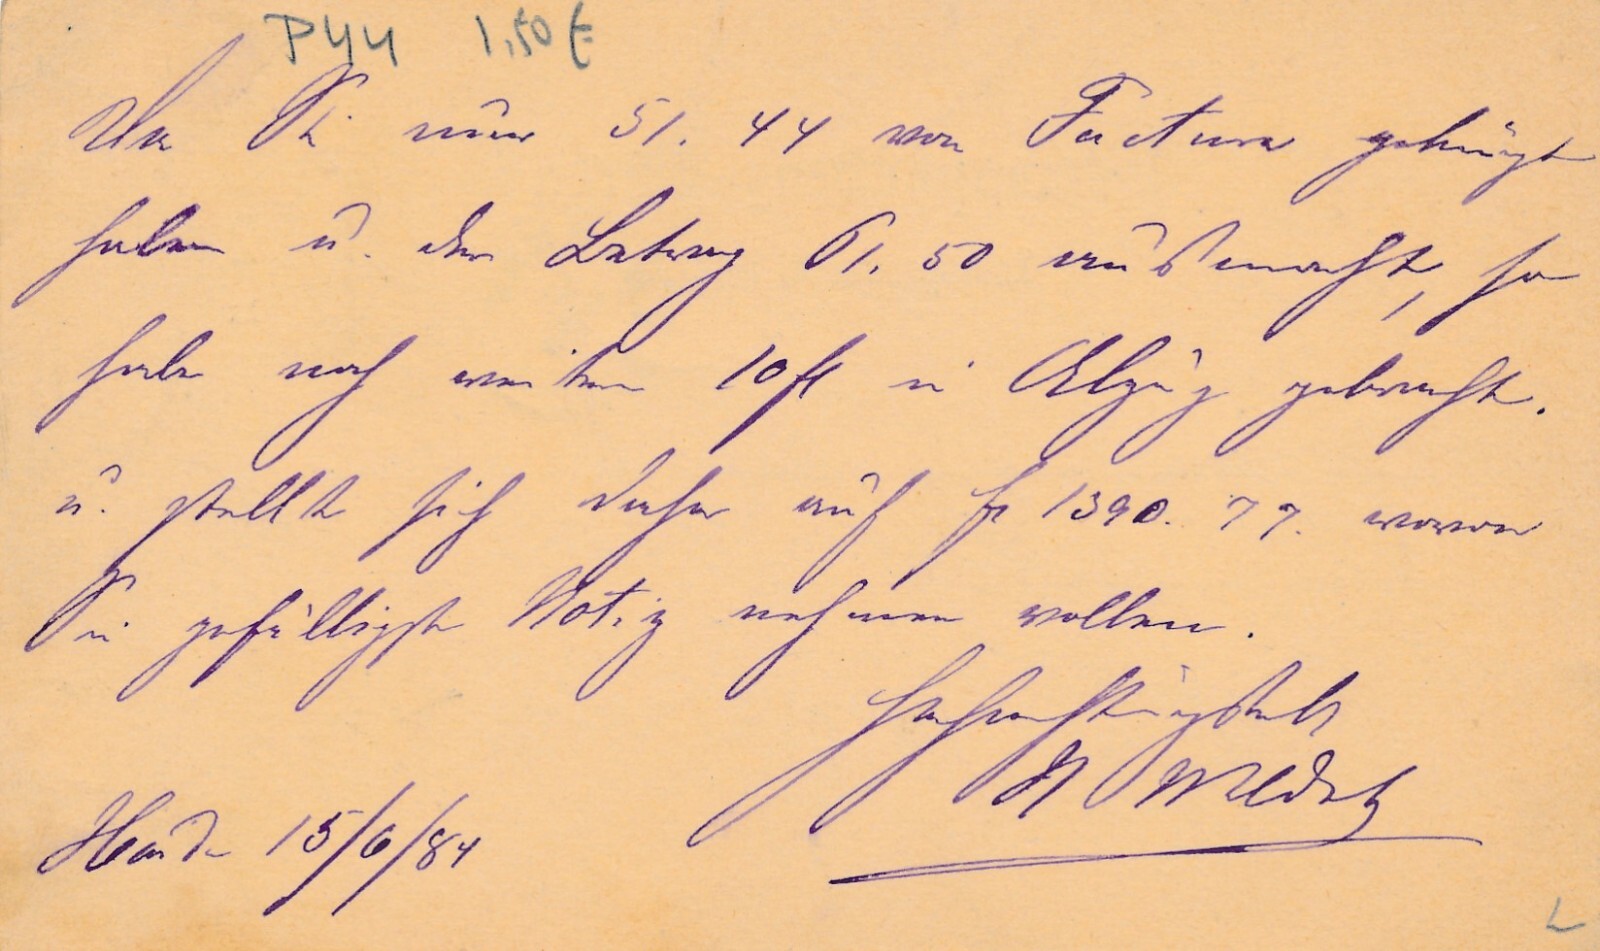 P44 1,50 €
Da Sie nur 51. 44 von Factura gekürzt
haben u. der Betrag 61. 50 ausmacht, so
habe noch weitere 10 fl in Abzug gebracht.
u. stellt sich daher auf fl 1390. 77. wovon
Sie gefälligst Notiz nehmen wollen.
Hochachtungsvoll
Hard 15/6/84